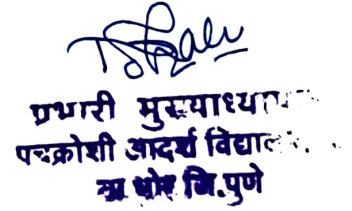 प्रभारी मुख्याध्या
पंचक्रोशी आदर्श विद्याल
भोर जि.पुणे